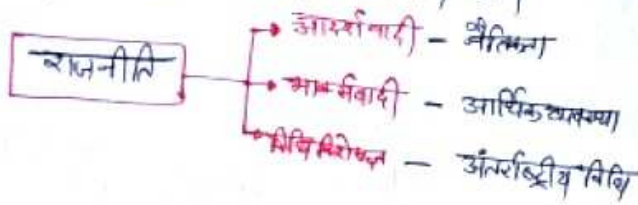 राजनीति
आदर्शवादी - नैतिकता
मार्क्सवादी - आर्थिक व्यवस्था
विधि विशेषज्ञ - अंतर्राष्ट्रीय विधि